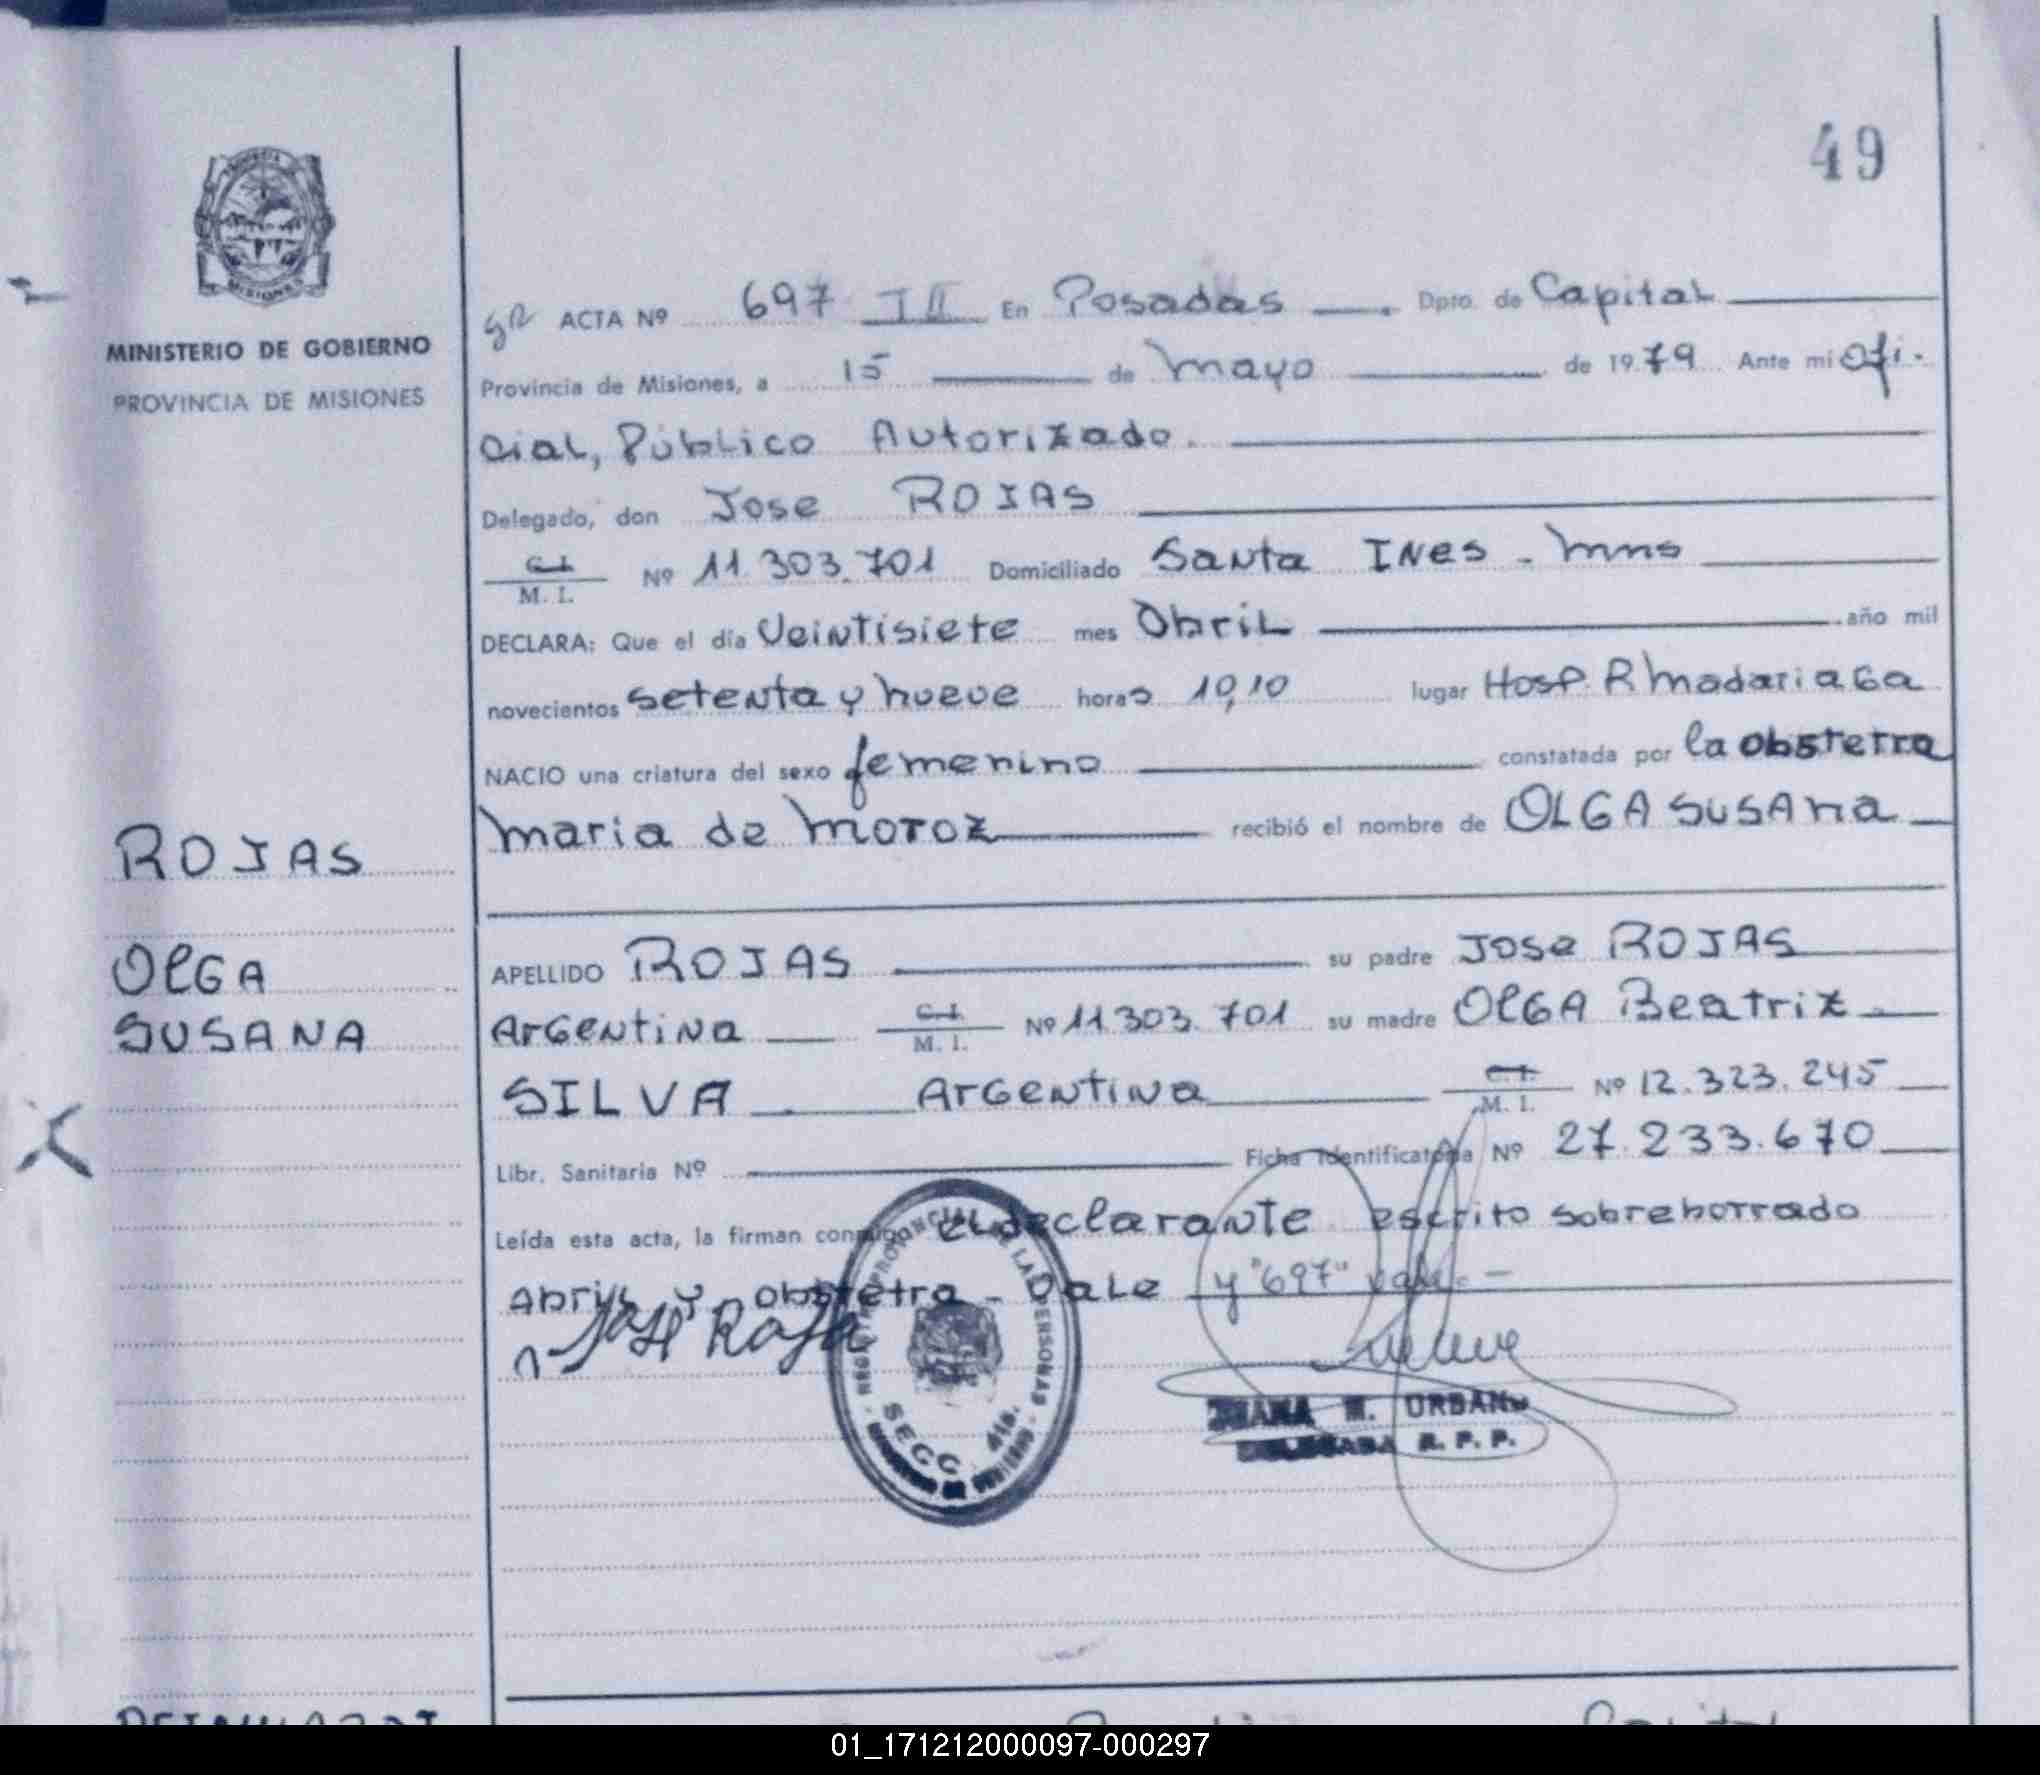 49
MINISTERIO DE GOBIERNO
PROVINCIA DE MISIONES
ACTA Nº 697 II En Posadas Dpto. de Capital
Provincia de Misiones, a 15 de mayo de 1979 Ante mi Ofi-
cial, Público Autorizado.
Delegado, don Jose ROJAS
C.I. M. I. Nº 11.303.701 Domiciliado Santa INes - mns
DECLARA: Que el día Veintisiete mes Abril año mil
novecientos setenta y nueve horas 10,10 lugar Hosp. R Madariaga
NACIO una criatura del sexo femenino constatada por la obstetra
maria de moroz recibió el nombre de OLGA SUSAna
ROJAS
OLGA
SUSANA
APELLIDO ROJAS su padre Jose ROJAS
Argentina C.I. M. I. Nº 11.303.701 su madre OLGA Beatriz
SILVA Argentina C.I. M. I. Nº 12.323.245
Libr. Sanitaria Nº Ficha Identificatoria Nº 27.233.670
Leída esta acta, la firman conmigo el declarante escrito sobreborrado
Abril y obstetra - Vale y "697" vale.-
Jose Rojas
REGISTRO PROVINCIAL DE LAS PERSONAS
SECC. 4ta.
MINISTERIO DE GOBIERNO
M. URBANO
DELEGADA R. P. P.
01_171212000097-000297